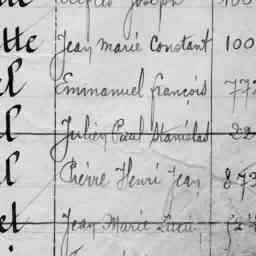 Joseph 100
tte Jean Marie Constant 100
el Emmanuel François 772
el Julien Paul Stanislas 22
el Pierre Henri Jean 873
et Jean Marie Lucien